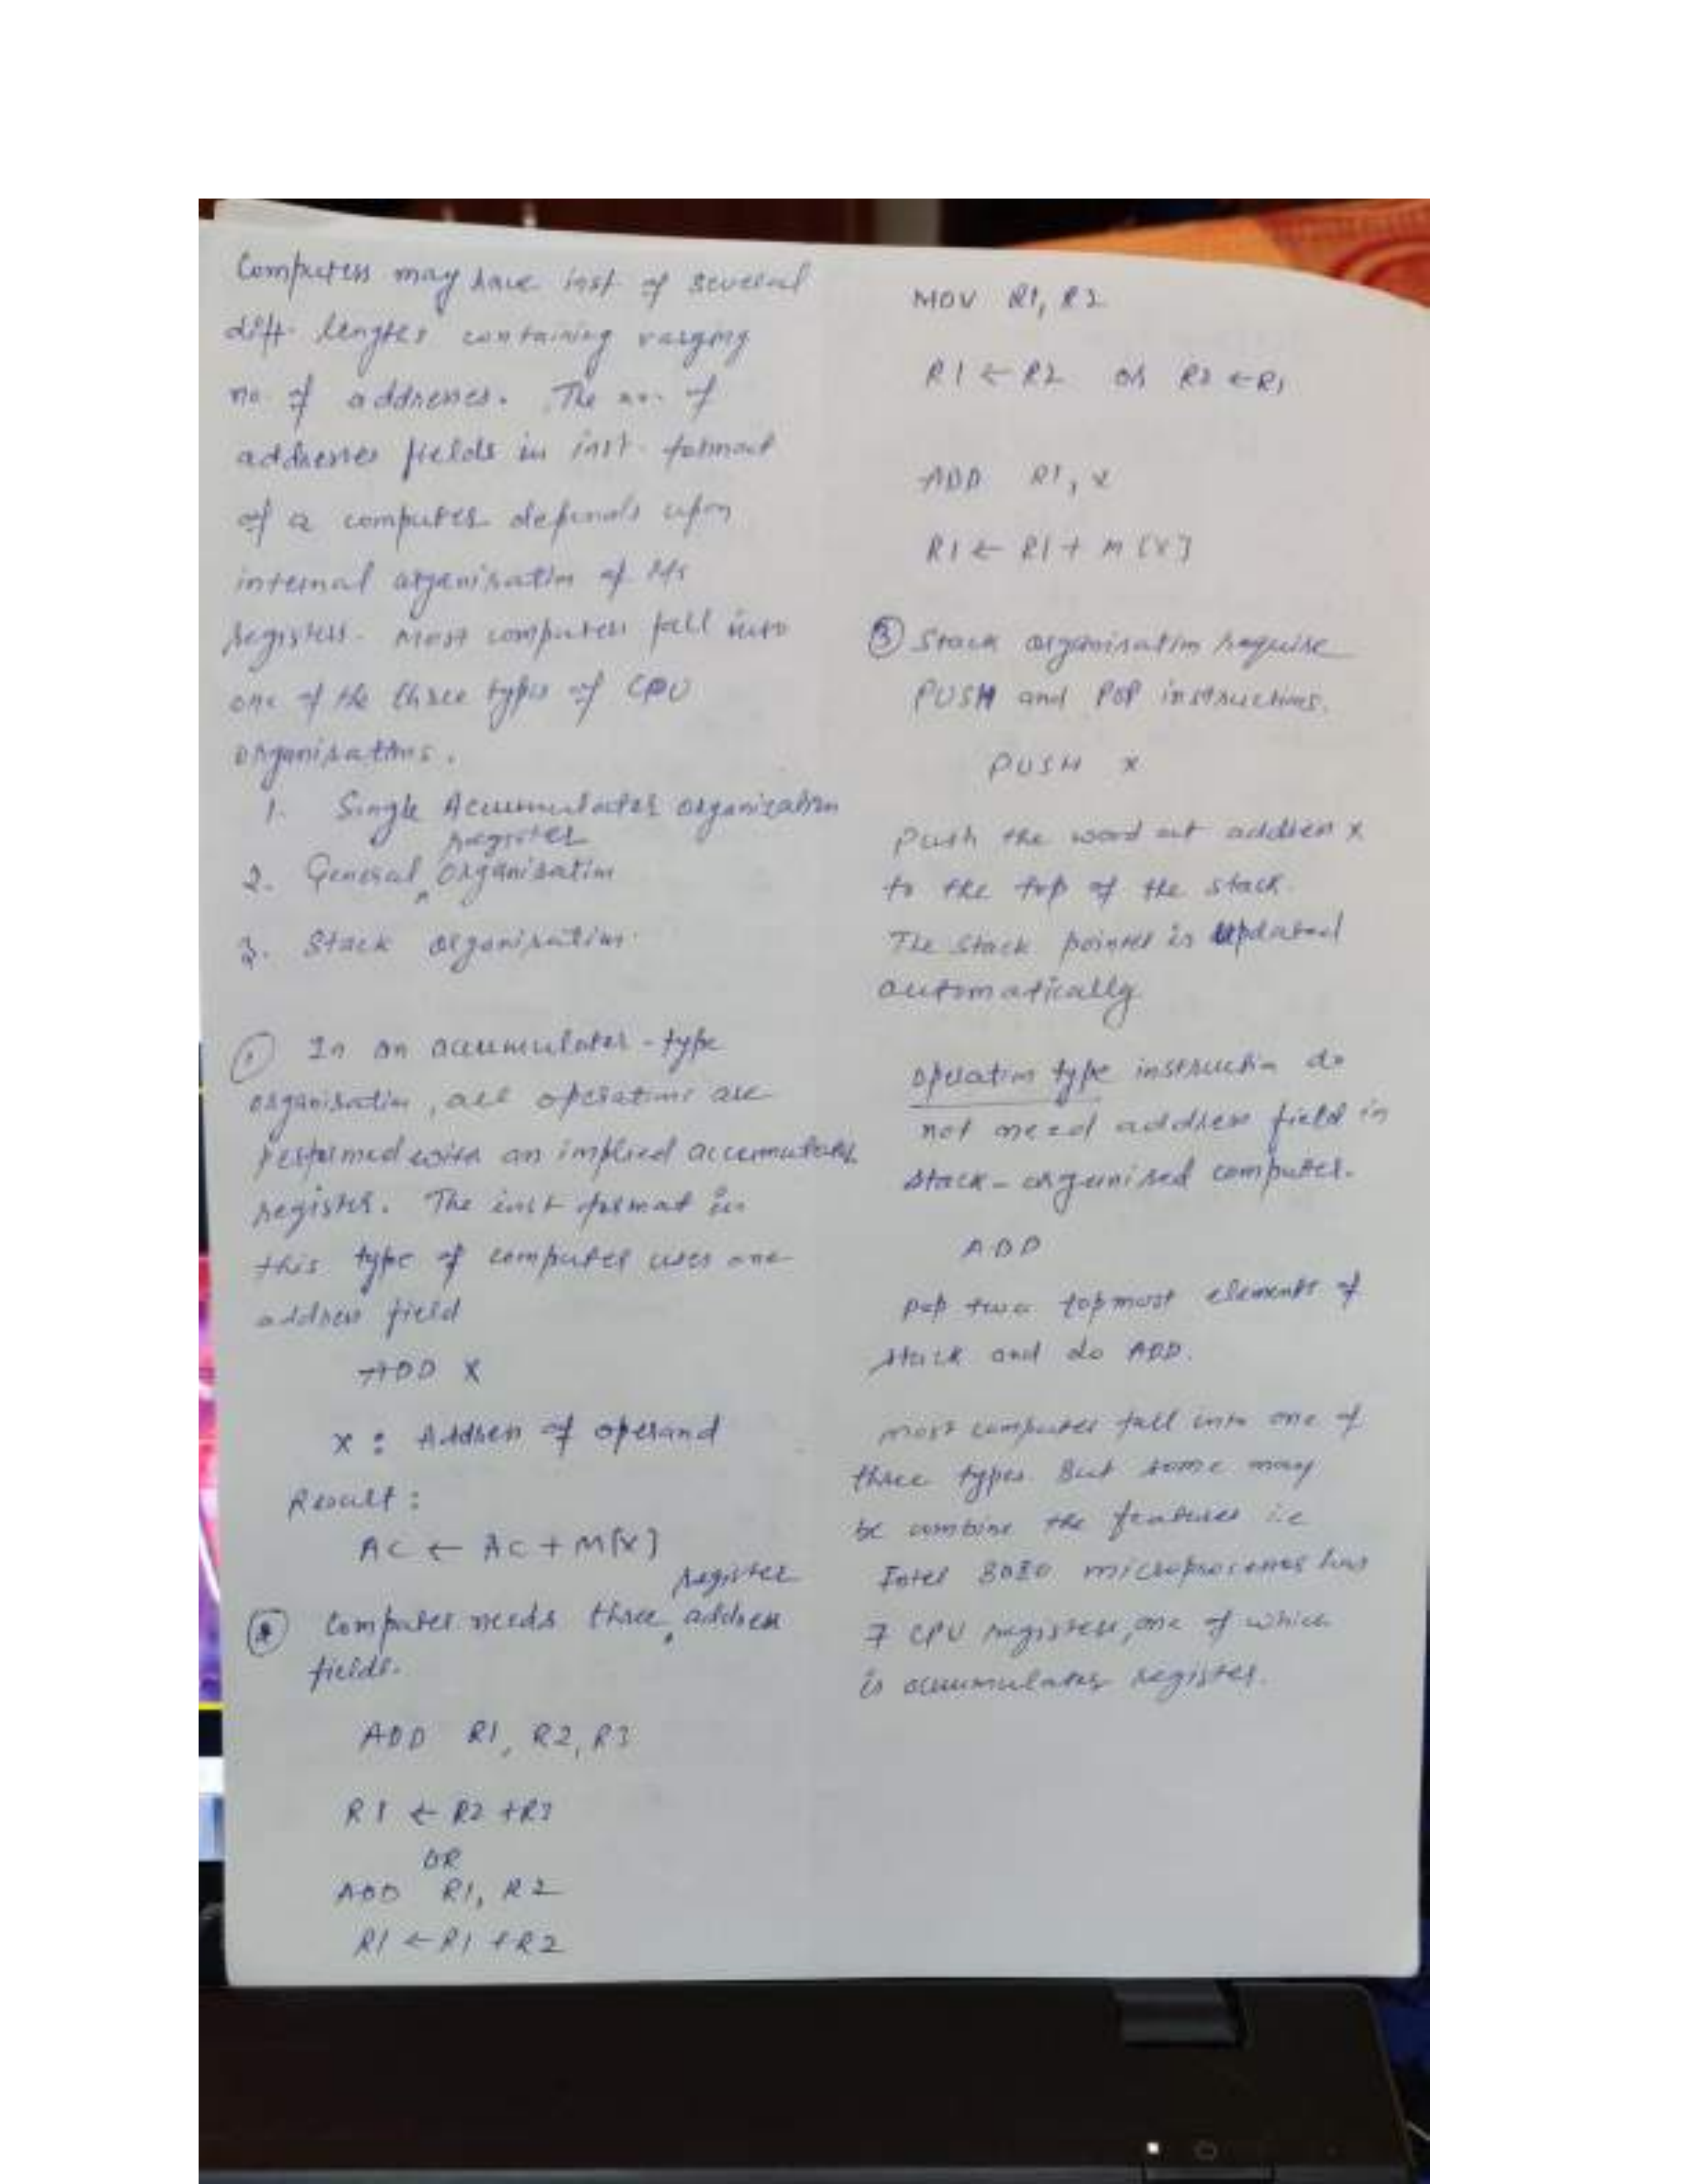 Computers may have inst of several
diff. lengths containing varying
no. of addresses. The no. of
addresses fields in inst. format
of a computer depends upon
internal organisation of its
registers. Most computers fall into
one of the three types of CPU
organisations.
1. Single Accumulator organization
register
2. General ^ Organisation
3. Stack organisation.
① In an accumulator-type
organisation, all operations are
performed with an implied accumulator
register. The inst format in
this type of computer uses one
address field
ADD X
X : Address of operand
Result :
AC ← AC + M[X]
register
② Computer needs three ^ address
fields.
ADD R1, R2, R3
R1 ← R2 + R3
OR
ADD R1, R2
R1 ← R1 + R2
MOV R1, R2
R1 ← R2 or R2 ← R1
ADD R1, X
R1 ← R1 + M[X]
③ Stack organisation require
PUSH and POP instructions.
PUSH X
Push the word at address X
to the top of the stack.
The stack pointer is updated
automatically
Operation type instruction do
not need address field in
stack-organised computer.
ADD
Pop two topmost elements of
stack and do ADD.
most computer fall into one of
three types. But some may
be combine the features i.e
Intel 8080 microprocessor has
7 CPU registers, one of which
is accumulator register.